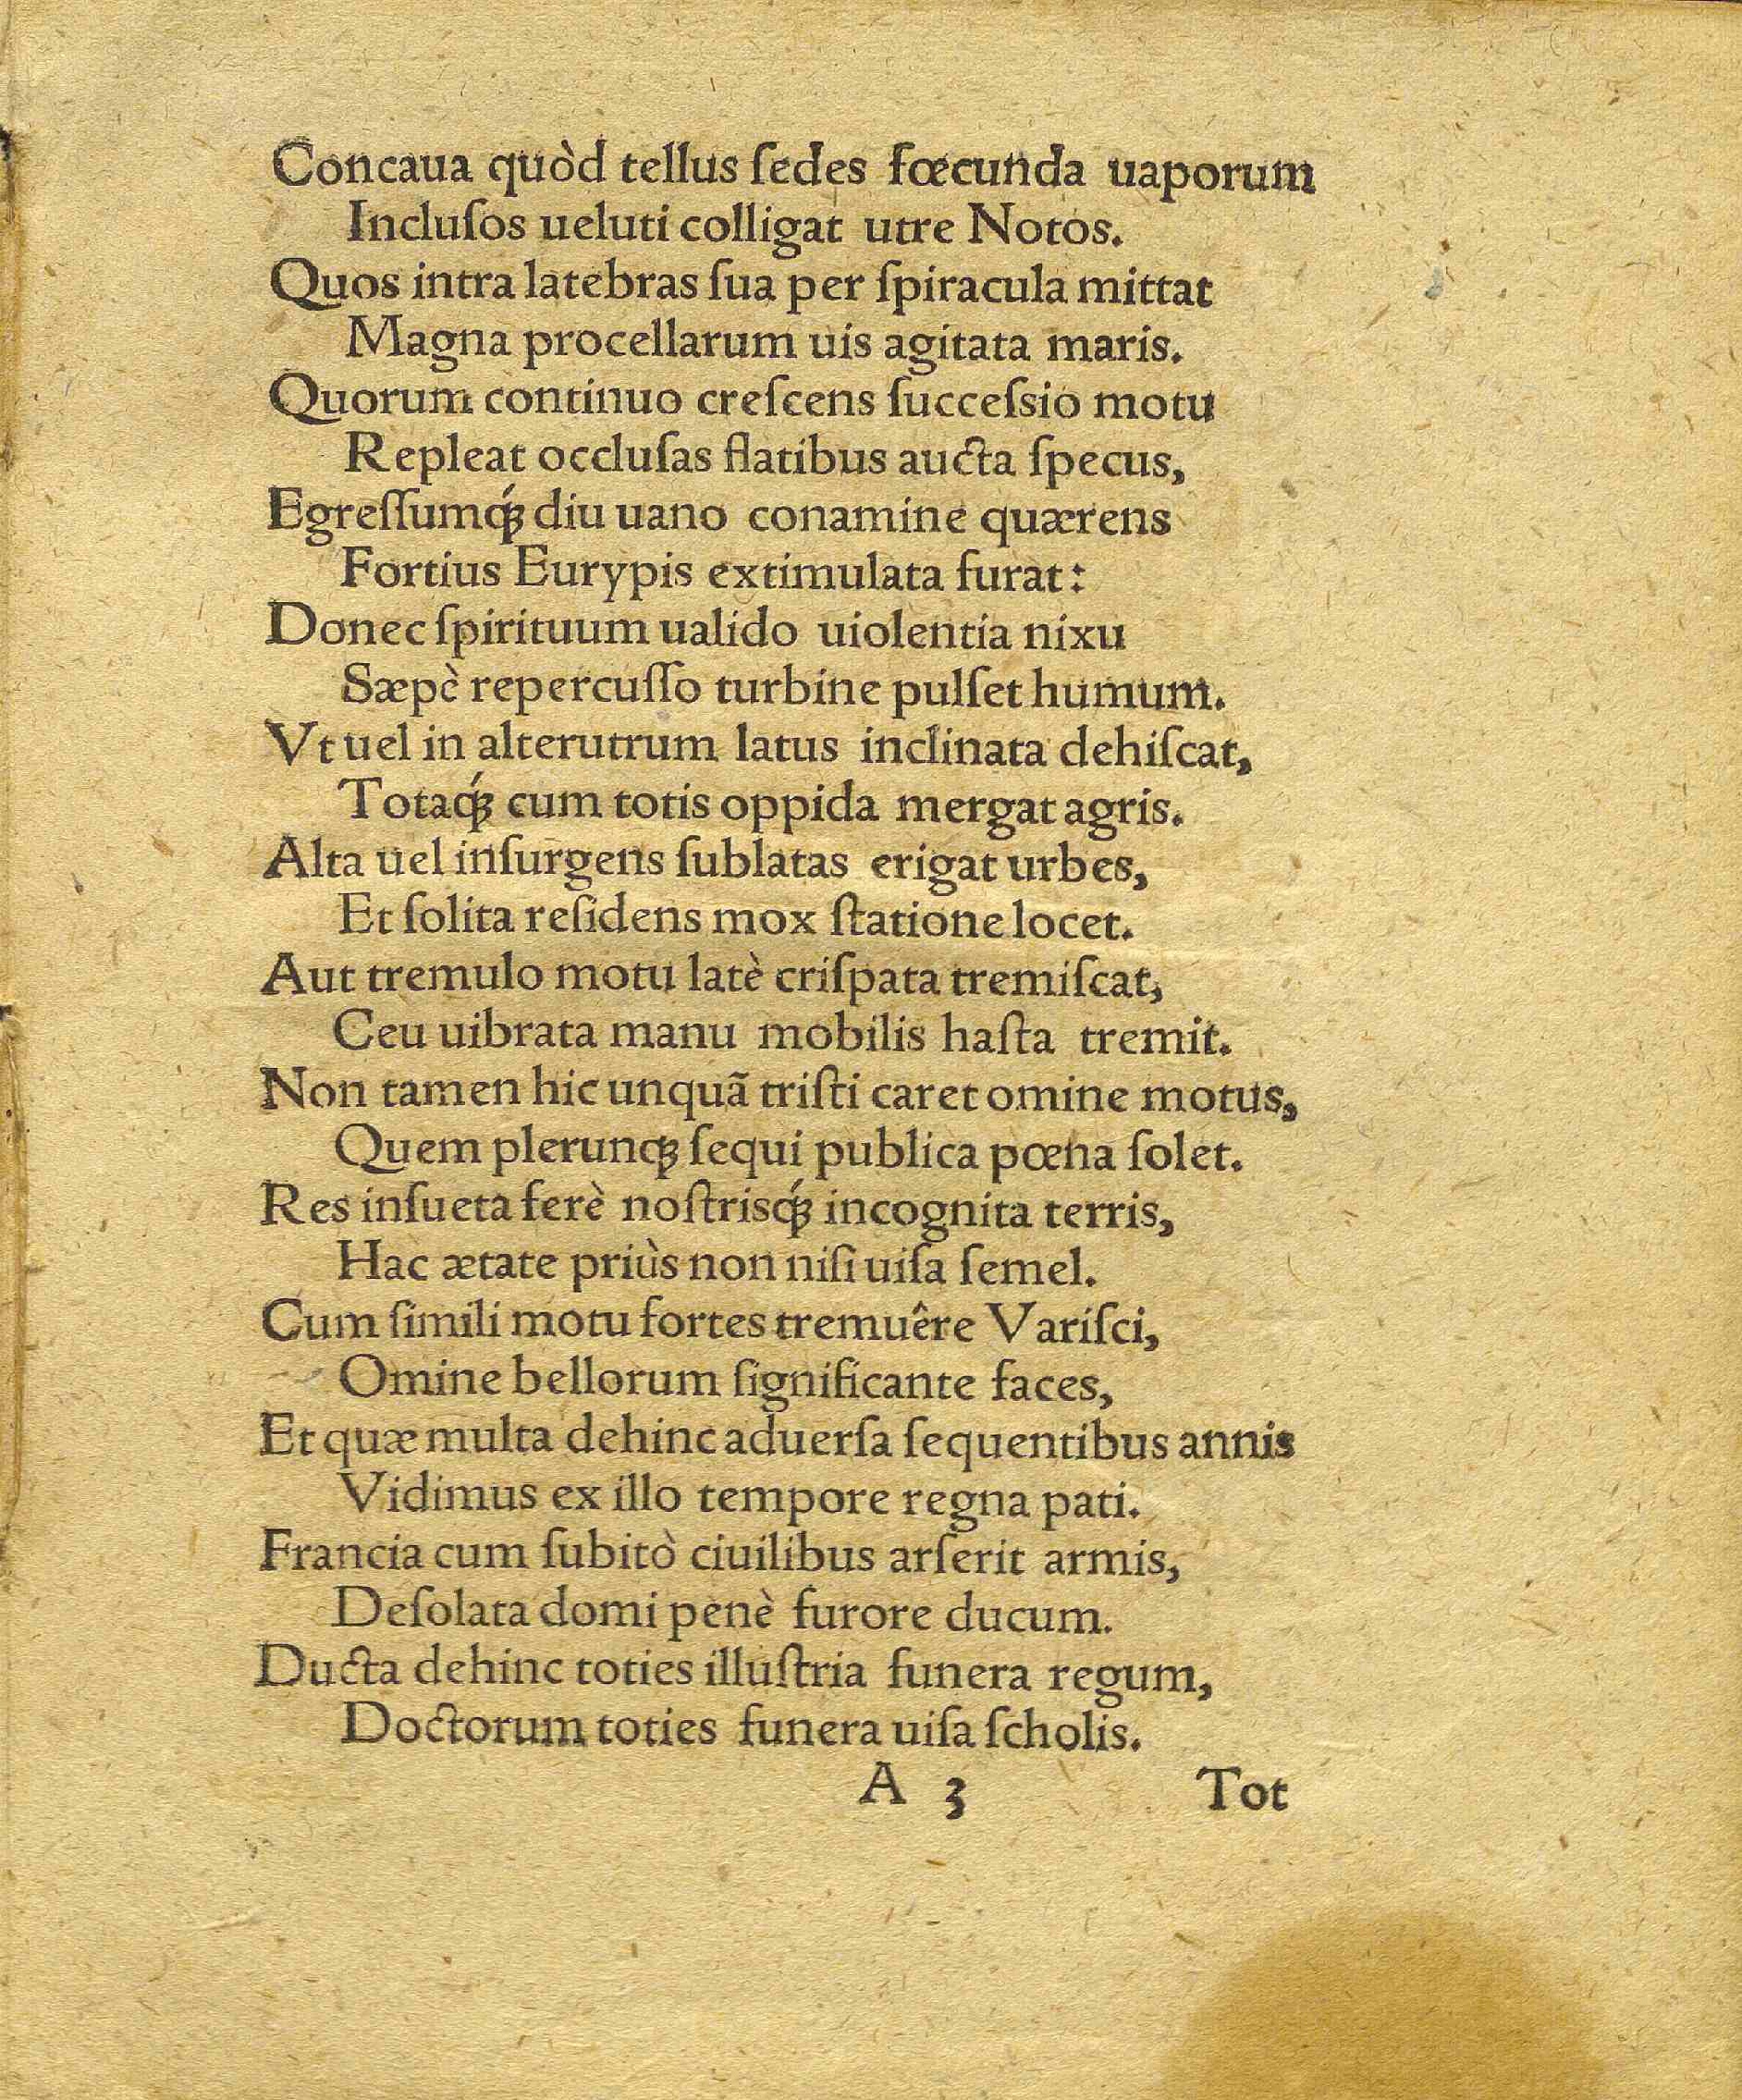 Concaua quòd tellus ſedes fœcunda uaporum
Incluſos ueluti colligat utre Notos.
Quos intra latebras ſua per ſpiracula mittat
Magna procellarum uis agitata maris.
Quorum continuo creſcens ſucceſsio motu
Repleat occluſas flatibus aucta ſpecus,
Egreſſumq́ꝫ diu uano conamine quærens
Fortius Eurypis extimulata furat:
Donec ſpirituum ualido uiolentia nixu
Sæpè repercuſſo turbine pulſet humum.
Vt uel in alterutrum latus inclinata dehiſcat,
Totaq́ꝫ cum totis oppida mergat agris.
Alta uel inſurgens ſublatas erigat urbes,
Et ſolita reſidens mox ſtatione locet.
Aut tremulo motu latè criſpata tremiſcat,
Ceu uibrata manu mobilis haſta tremit.
Non tamen hic unquã triſti caret omine motus,
Quem plerunqꝫ ſequi publica pœna ſolet.
Res inſueta ferè noſtrisq́ꝫ incognita terris,
Hac ætate priùs non niſi uiſa ſemel.
Cum ſimili motu fortes tremuêre Variſci,
Omine bellorum ſignificante faces,
Et quæ multa dehinc aduerſa ſequentibus annis
Vidimus ex illo tempore regna pati.
Francia cum ſubitò ciuilibus arſerit armis,
Deſolata domi penè furore ducum.
Ducta dehinc toties illuſtria funera regum,
Doctorum toties funera uiſa ſcholis.
A 3 Tot